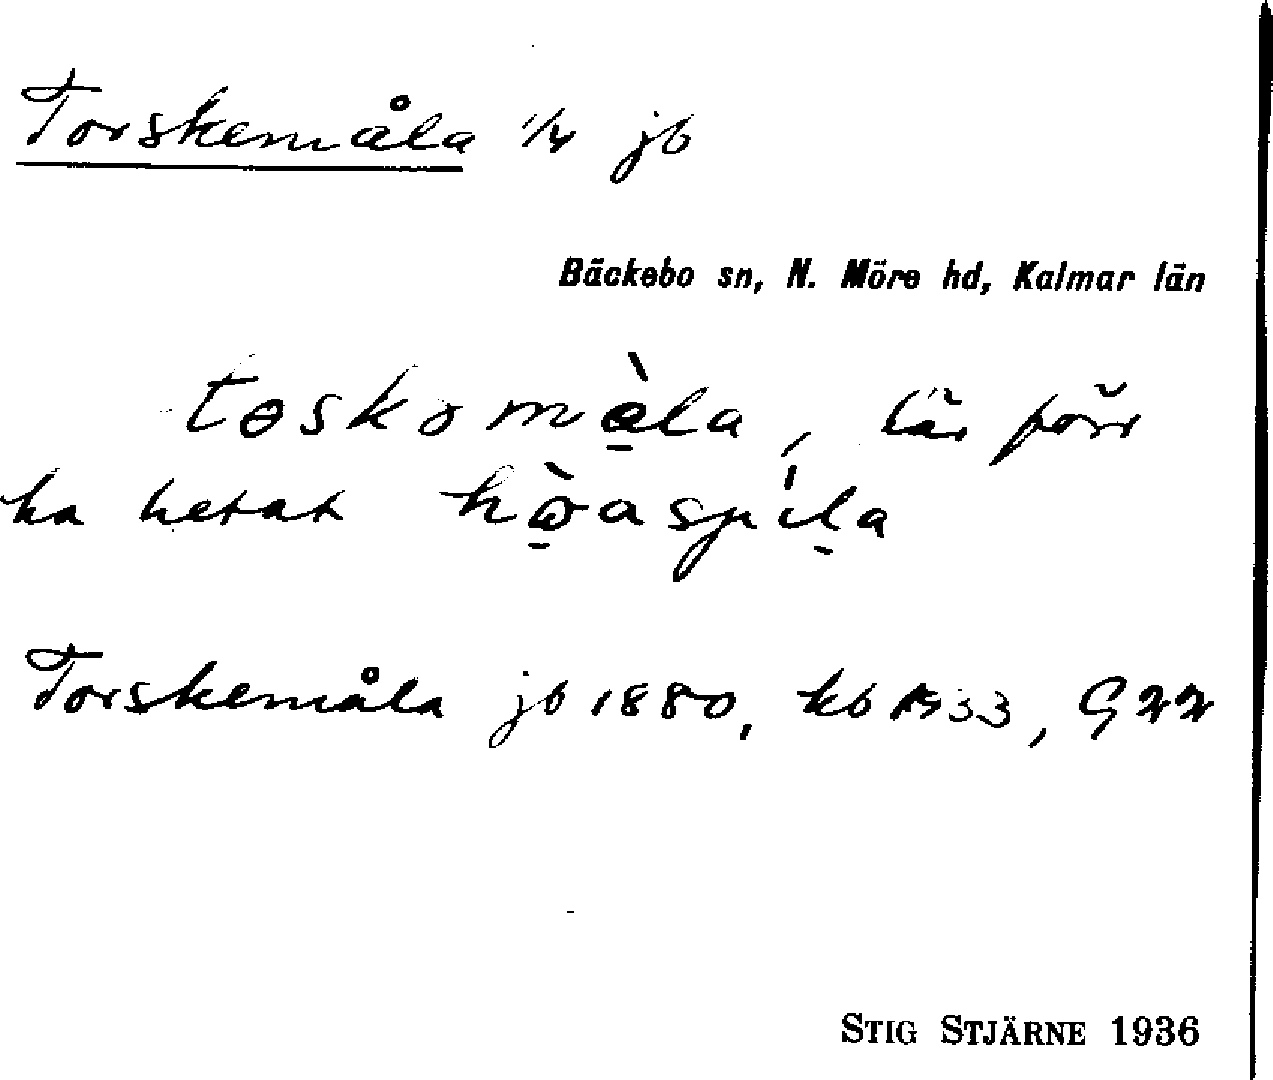 Torskemåla 1/4 jb
Bäckebo sn, N. Möre hd, Kalmar län
lär förr
ha hetat
Torskemåla jb 1880, kb 1933, G
STIG STJÄRNE 1936